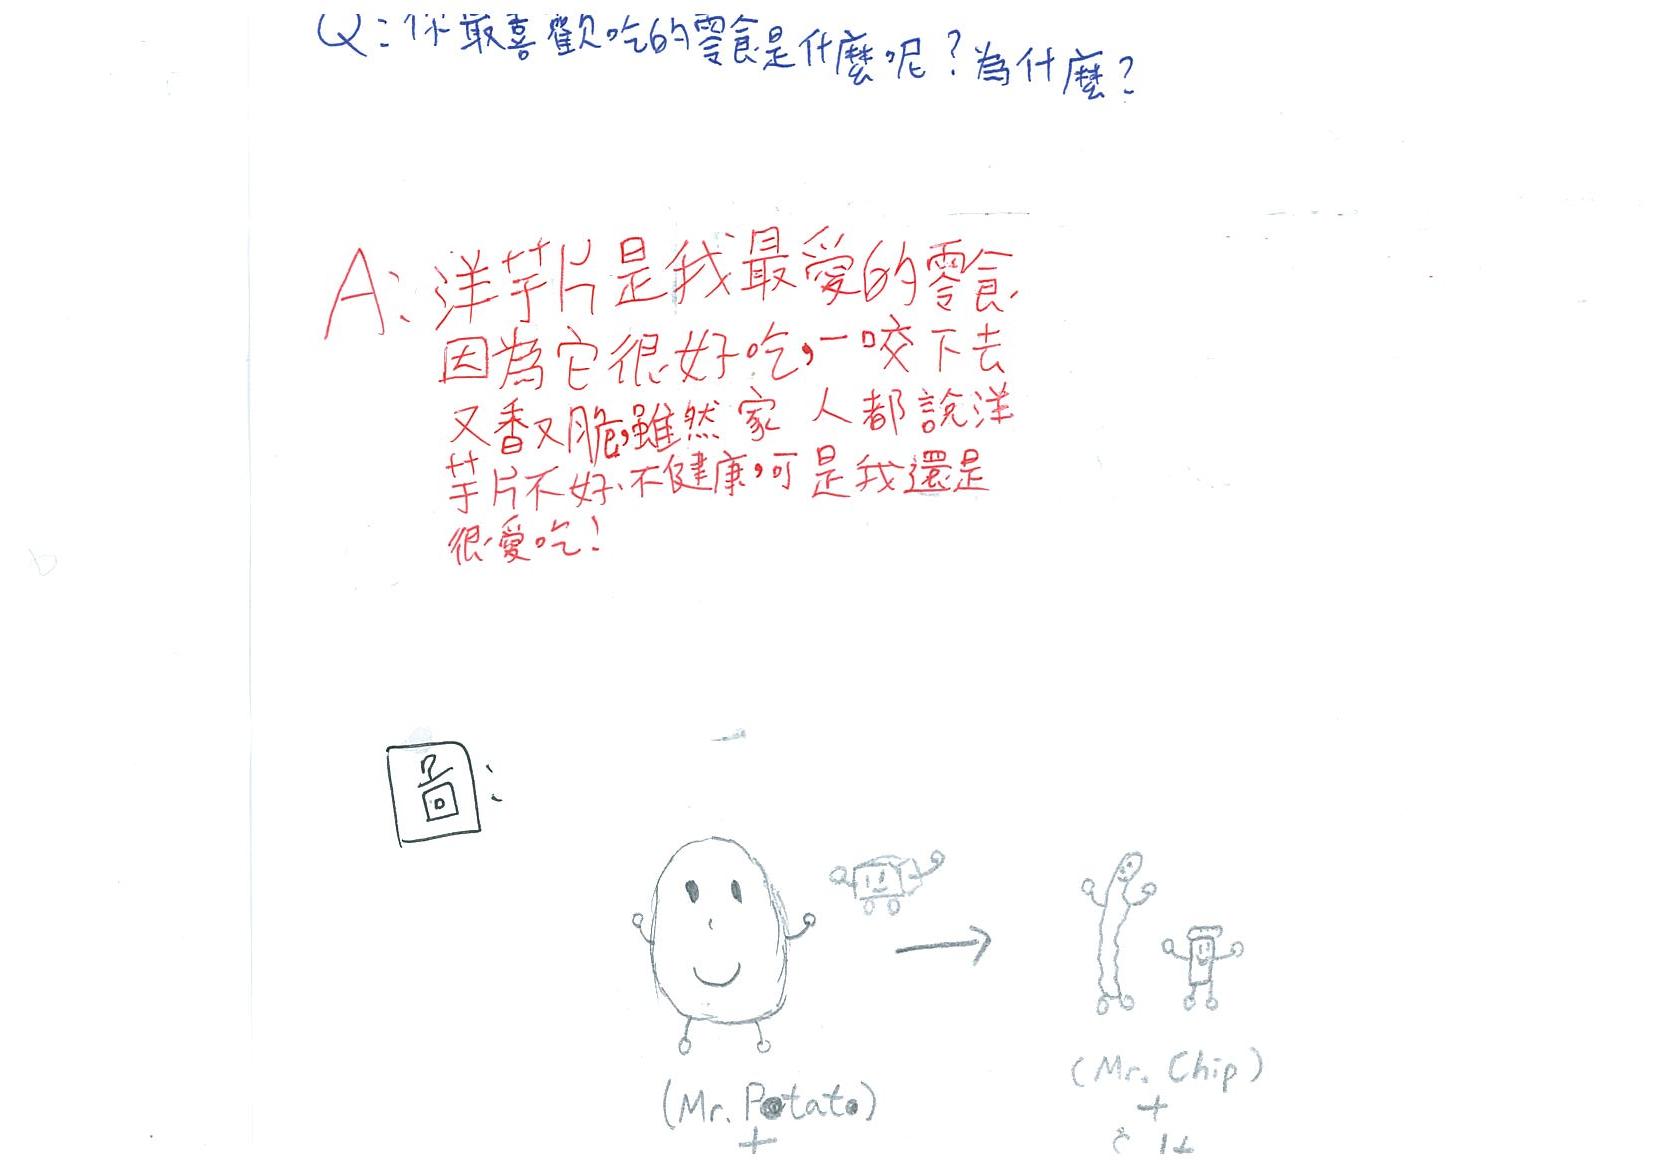 Q:你最喜歡吃的零食是什麼呢?為什麼?
A:洋芋片是我最愛的零食
因為它很好吃,一咬下去
又香又脆,雖然家人都說洋
芋片不好、不健康,可是我還是
很愛吃!
圖:
(Mr. Potato)
+
(Mr. Chip)
+